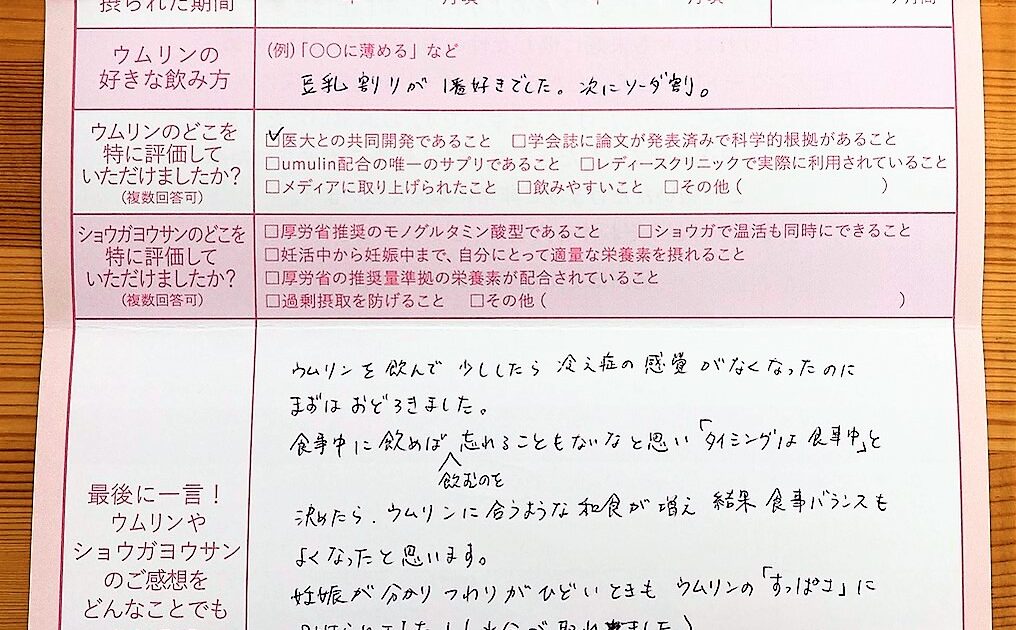 摂られた期間
年 月頃 年 月頃 ヶ月間
ウムリンの
好きな飲み方
(例)「〇〇に薄める」など
豆乳割りが1番好きでした。次にソーダ割。
ウムリンのどこを
特に評価して
いただけましたか?
(複数回答可)
☑医大との共同開発であること □学会誌に論文が発表済みで科学的根拠があること
□umulin配合の唯一のサプリであること □レディースクリニックで実際に利用されていること
□メディアに取り上げられたこと □飲みやすいこと □その他 ( )
ショウガヨウサンのどこを
特に評価して
いただけましたか?
(複数回答可)
□厚労省推奨のモノグルタミン酸型であること □ショウガで温活も同時にできること
□妊活中から妊娠中まで、自分にとって適量な栄養素を摂れること
□厚労省の推奨量準拠の栄養素が配合されていること
□過剰摂取を防げること □その他 ( )
最後に一言!
ウムリンや
ショウガヨウサン
のご感想を
どんなことでも
ウムリンを飲んで少ししたら冷え症の感覚がなくなったのに
まずはおどろきました。
食事中に飲めば忘れることもないなと思い「タイミングは食事中」と
飲むのを
決めたら、ウムリンに合うような和食が増え 結果 食事バランスも
よくなったと思います。
妊娠が分かりつわりがひどいときも ウムリンの「すっぱさ」に